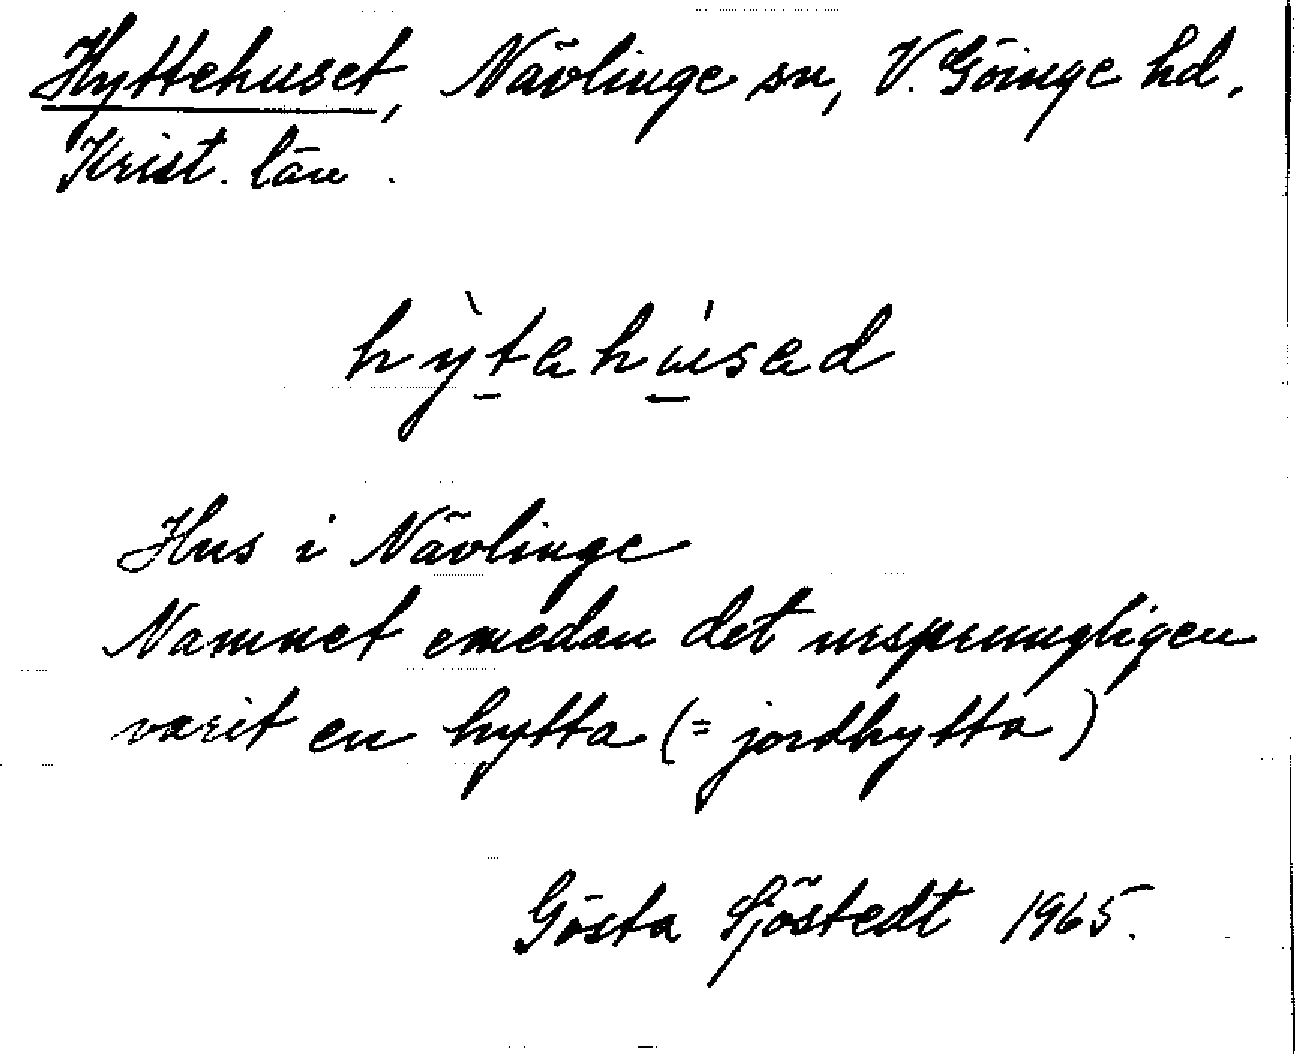 Hyttehuset, Nävlinge sn, V. Göinge hd.
Krist. län.
hỳtahúsad
Hus i Nävlinge
Namnet emedan det ursprungligen
varit en hytta (= jordhytta)
Gösta Sjöstedt 1965.